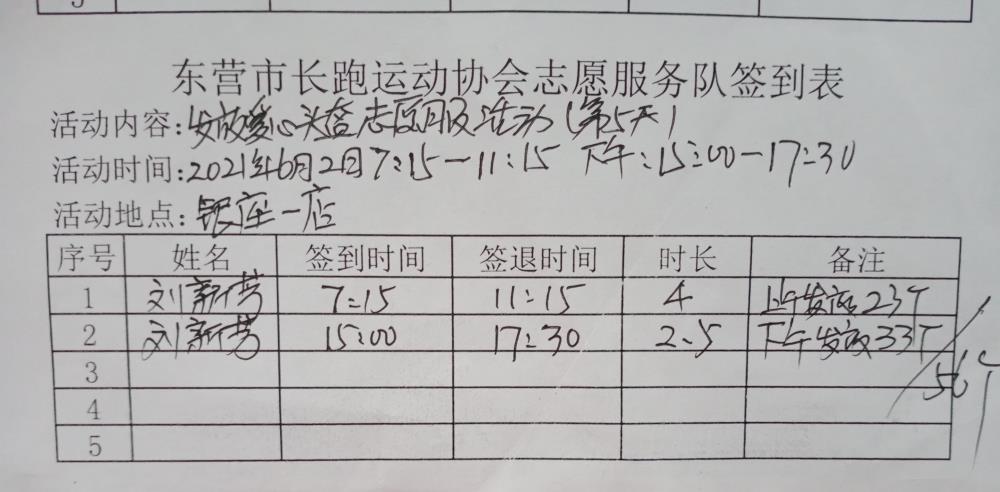 5
东营市长跑运动协会志愿服务队签到表
活动内容:发放爱心头盔志愿服及活动(第5天)
活动时间:2021年6月2日7:15-11:15 下午:15:00-17:30
活动地点:银座一店
序号 姓名 签到时间 签退时间 时长 备注
1 刘新芳 7:15 11:15 4 上午发放23个
2 刘新芳 15:00 17:30 2.5 下午发放33个
56个
3
4
5